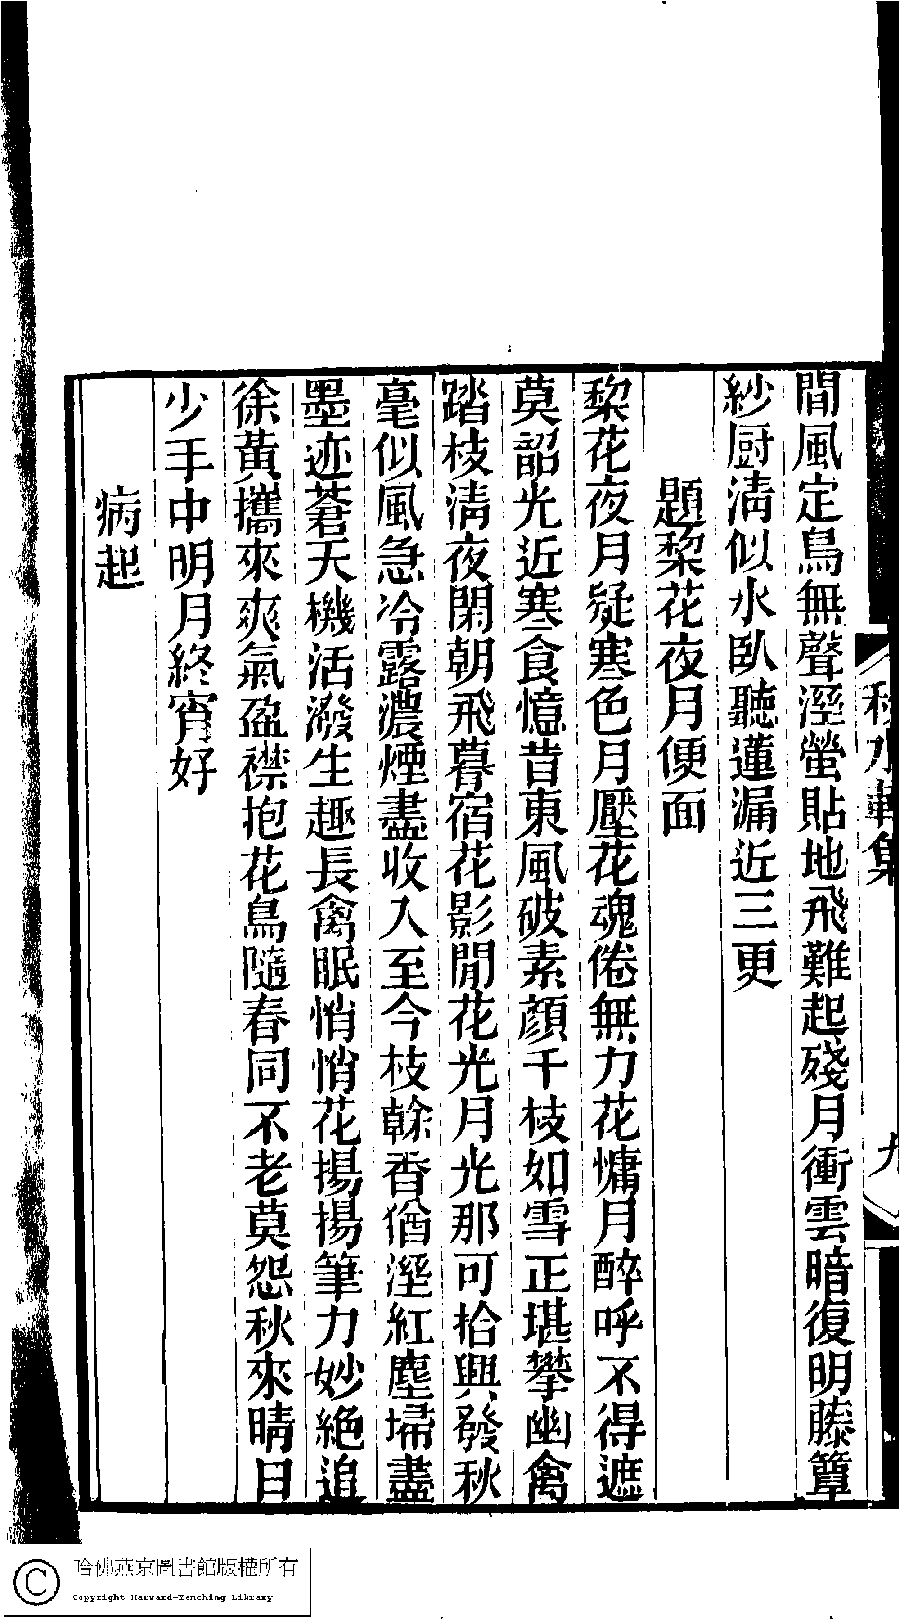 間風定鳥無聲溼螢貼地飛難起殘月衝雲暗復明藤簟
紗厨淸似水臥聽蓮漏近三更
題棃花夜月便面
棃花夜月疑寒色月壓花魂倦無力花慵月醉呼不得遮
莫韶光近寒食憶昔東風破素顔千枝如雪正堪攀幽禽
踏枝淸夜閑朝飛暮宿花影閒花光月光那可拾興發秋
毫似風急冷露濃煙盡收入至今枝榦香猶溼紅塵埽盡
墨迹蒼天機活潑生趣長禽眠悄悄花揚揚筆力妙絶追
徐黃攜來爽氣盈襟抱花鳥隨春同不老莫怨秋來晴日
少手中明月終宵好
病起
秋水軒集
九
哈佛燕京圖書館版權所有
Copyright Harvard-Yenching Library